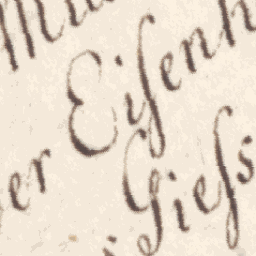 er Eiſenh
Gieſs